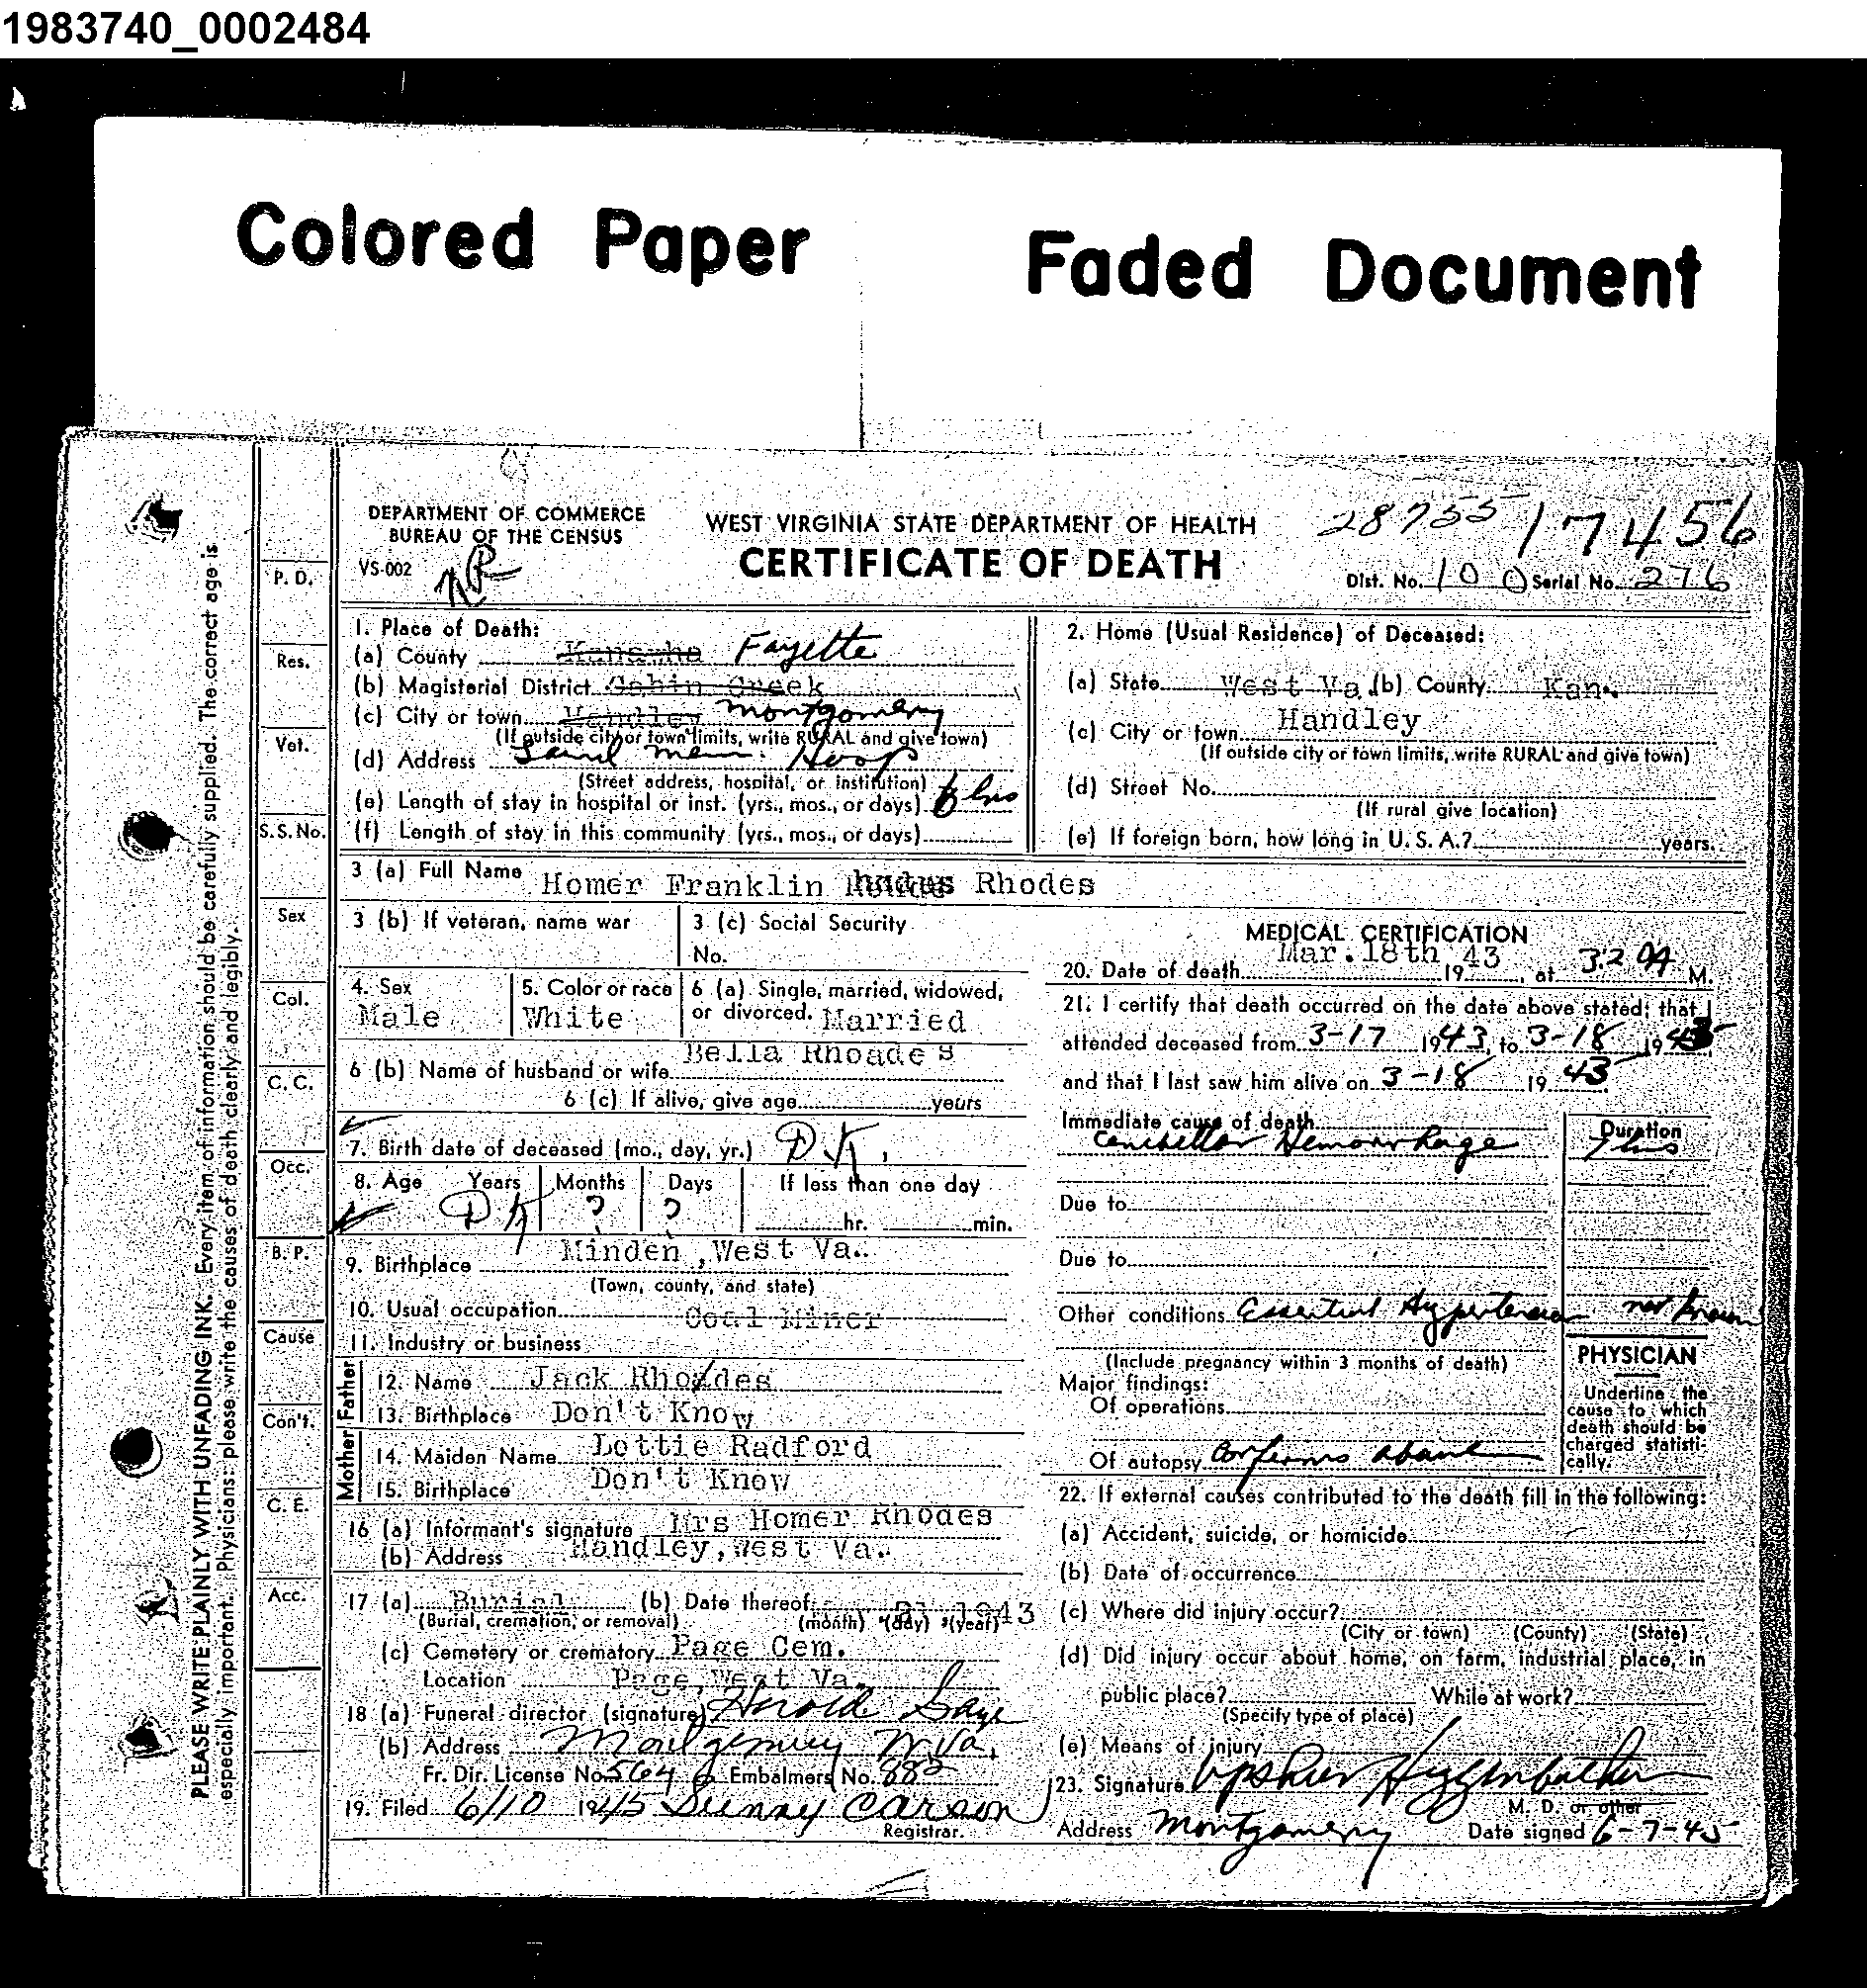 1983740_0002484
Colored Paper Faded Document
DEPARTMENT OF COMMERCE
BUREAU OF THE CENSUS
VS-002 NR
WEST VIRGINIA STATE DEPARTMENT OF HEALTH
CERTIFICATE OF DEATH
28755 17456
Dist. No. 100 Serial No. 276
PLEASE WRITE PLAINLY WITH UNFADING INK. Every item of information should be carefully supplied. The correct age is
especially important. Physicians: please write the causes of death clearly and legibly.
P. D.
Res.
Vet.
S.S. No.
Sex
Col.
C. C.
Occ.
B. P.
Cause
Con't.
C. E.
Acc.
1. Place of Death:
(a) County Kanawha Fayette
(b) Magisterial District Cabin Creek
(c) City or town Handley Montgomery
(If outside city or town limits, write RURAL and give town)
(d) Address Laird Mem. Hosp
(Street address, hospital, or institution)
(e) Length of stay in hospital or inst. (yrs., mos., or days) hrs
(f) Length of stay in this community (yrs., mos., or days)
2. Home (Usual Residence) of Deceased:
(a) State West Va. (b) County Kan.
(c) City or town Handley
(If outside city or town limits, write RURAL and give town)
(d) Street No.
(If rural give location)
(e) If foreign born, how long in U. S. A.? years.
3 (a) Full Name Homer Franklin Rhodes
3 (b) If veteran, name war
3 (c) Social Security
No.
4. Sex
Male
5. Color or race
White
6 (a) Single, married, widowed,
or divorced. Married
6 (b) Name of husband or wife Bella Rhoades
6 (c) If alive, give age years
7. Birth date of deceased (mo., day, yr.) D K,
8. Age Years Months Days If less than one day
D K ? ? hr. min.
9. Birthplace Minden, West Va.
(Town, county, and state)
10. Usual occupation Coal Miner
11. Industry or business
Father
12. Name Jack Rhodes
13. Birthplace Don't Know
Mother
14. Maiden Name Lottie Radford
15. Birthplace Don't Know
16 (a) Informant's signature Mrs Homer Rhodes
(b) Address Handley, West Va.
17 (a) Burial (b) Date thereof 21 1943
(Burial, cremation, or removal) (month) (day) (year)
(c) Cemetery or crematory Page Cem.
Location Page, West Va.
18 (a) Funeral director (signature) Harold
(b) Address Montgomery W. Va.
Fr. Dir. License No. 564 Embalmers No. 882
19. Filed 6/10 1945 Sunny Carson
Registrar.
MEDICAL CERTIFICATION
20. Date of death Mar. 18th 1943, at 3:20 A M.
21. I certify that death occurred on the date above stated; that I
attended deceased from 3-17 1943, to 3-18 1943
and that I last saw him alive on 3-18 1943
Immediate cause of death Duration
Cerebellar Hemorrhage 7 hrs
Due to
Due to
Other conditions Essential Hypertension not known
(Include pregnancy within 3 months of death)
Major findings:
Of operations
Of autopsy Confirms above
PHYSICIAN
Underline the
cause to which
death should be
charged statisti-
cally.
22. If external causes contributed to the death fill in the following:
(a) Accident, suicide, or homicide
(b) Date of occurrence
(c) Where did injury occur?
(City or town) (County) (State)
(d) Did injury occur about home, on farm, industrial place, in
public place? While at work?
(Specify type of place)
(e) Means of injury
23. Signature Upshur Higginbotham
M. D. or other
Address Montgomery Date signed 6-7-45